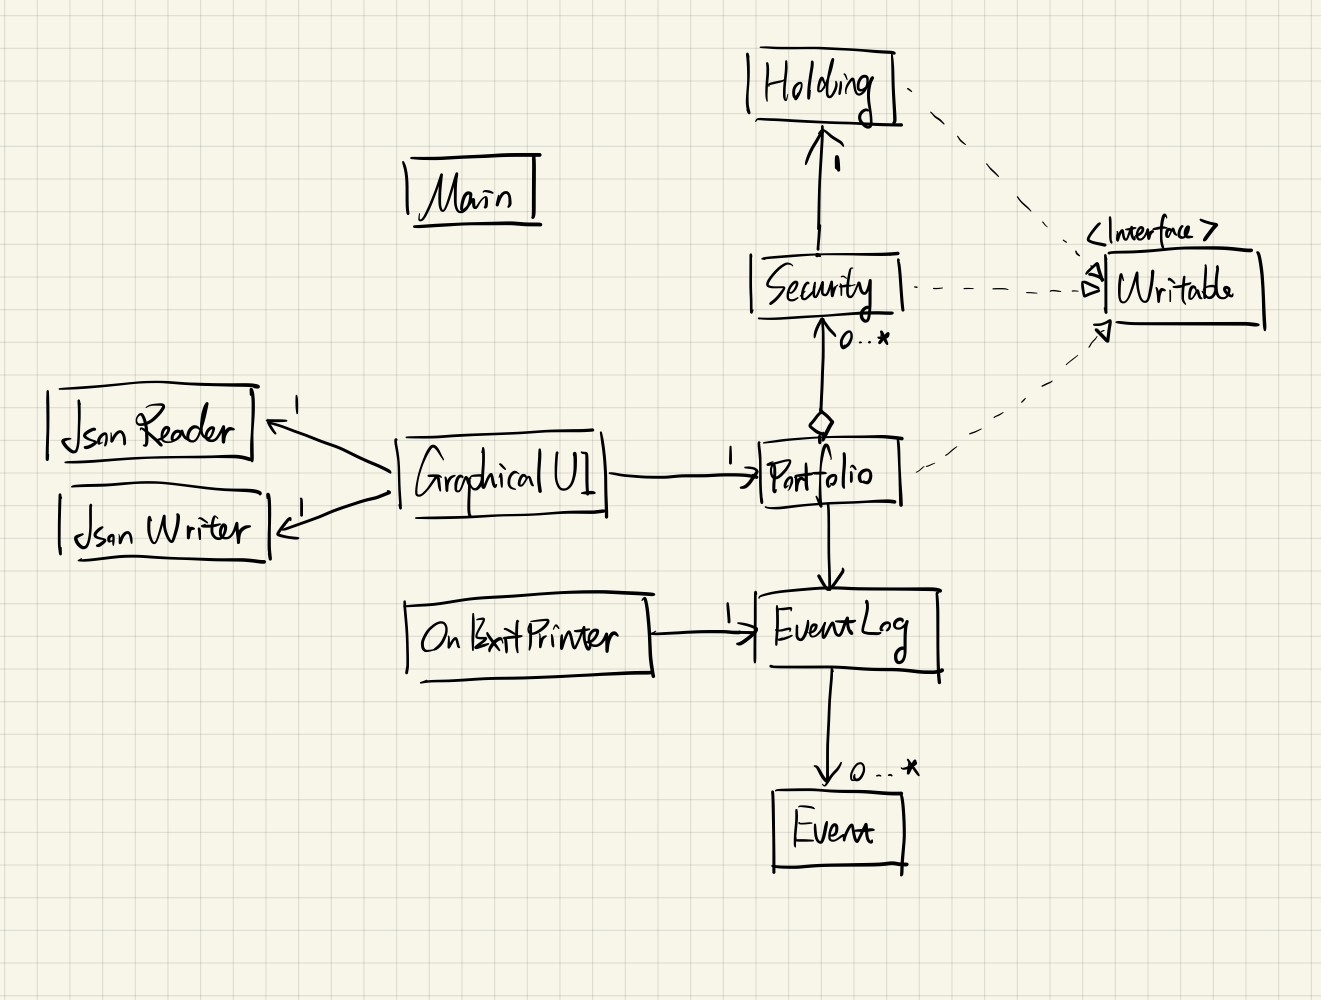 Holding
1
Main
<Interface>
Writable
Security
0...*
Json Reader
1
Graphical UI
1
Portfolio
Json Writer
1
OnExitPrinter
1
EventLog
0...*
Event